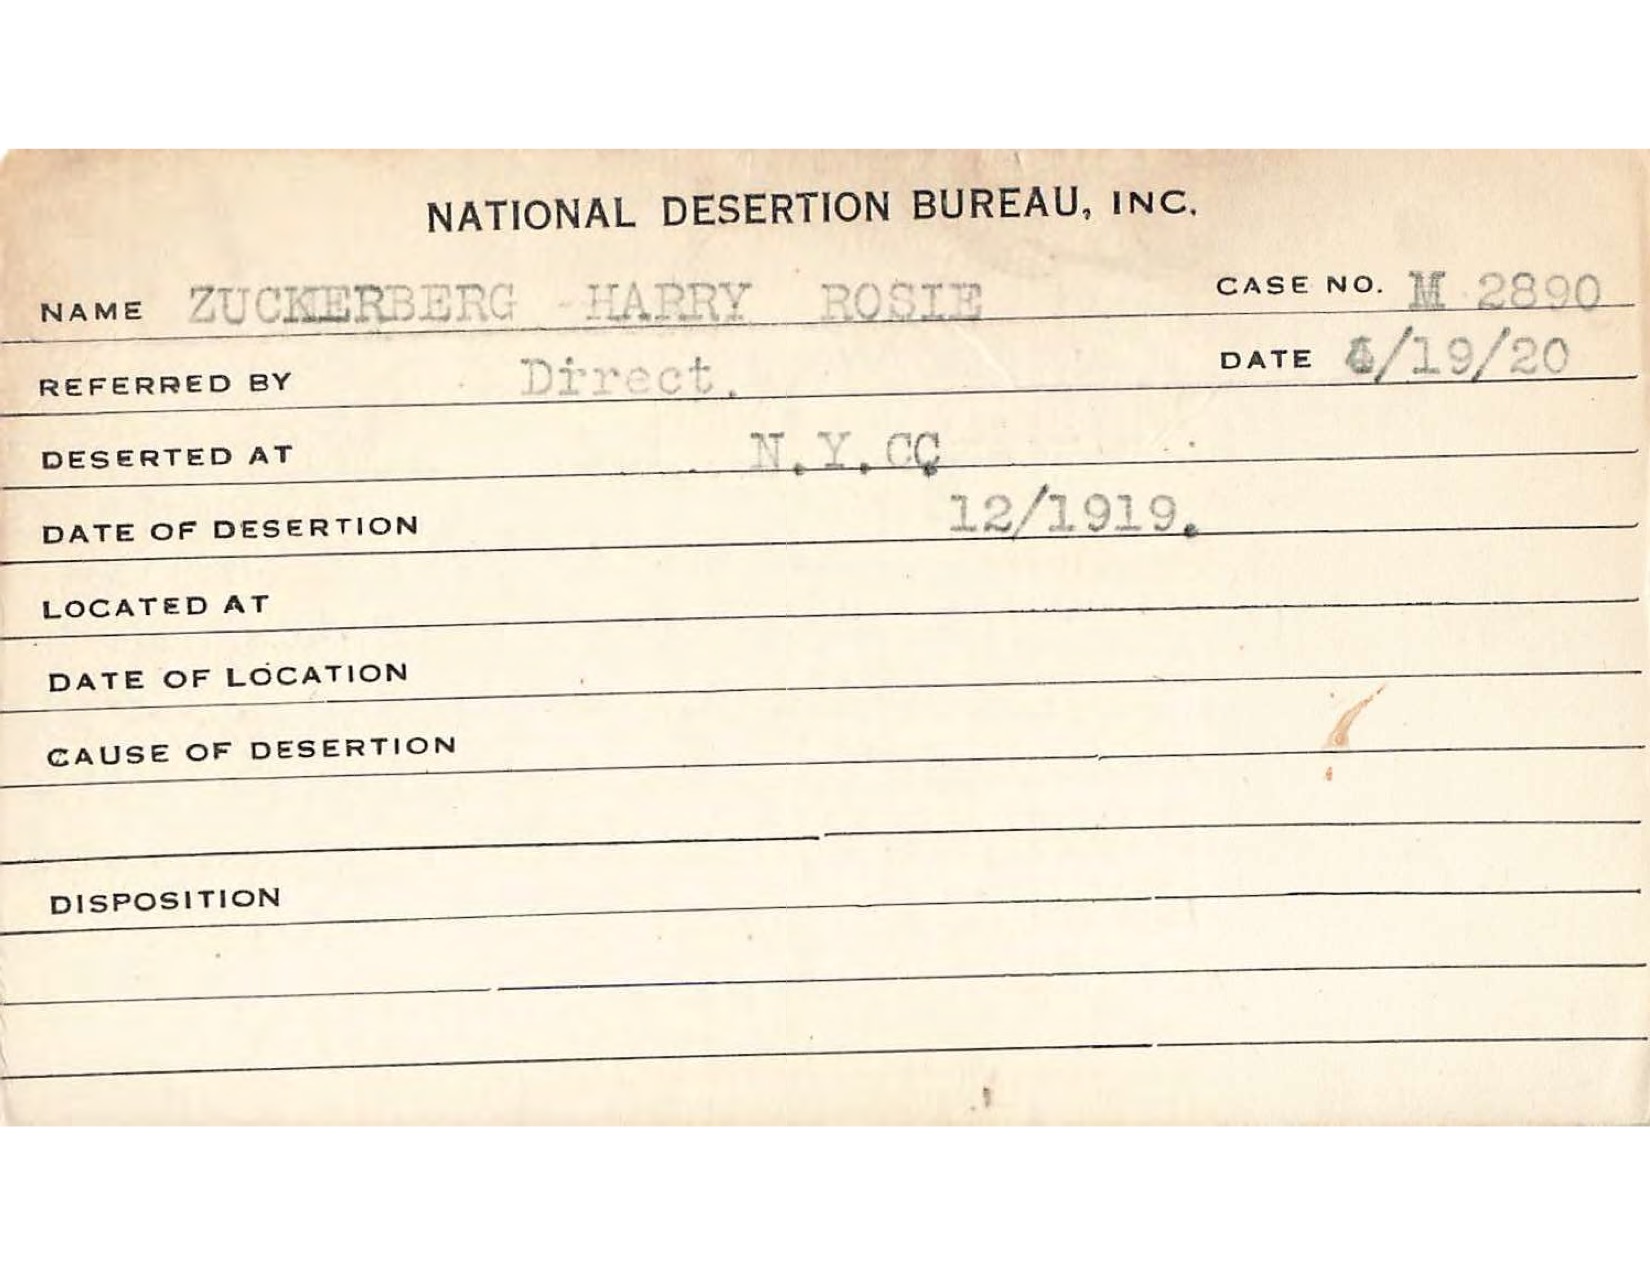 NATIONAL DESERTION BUREAU, INC.
NAME ZUCKERBERG - HARRY ROSIE CASE NO. M 2890
REFERRED BY Direct. DATE 4/19/20
DESERTED AT N.Y.CC.
DATE OF DESERTION 12/1919.
LOCATED AT
DATE OF LOCATION
CAUSE OF DESERTION
DISPOSITION